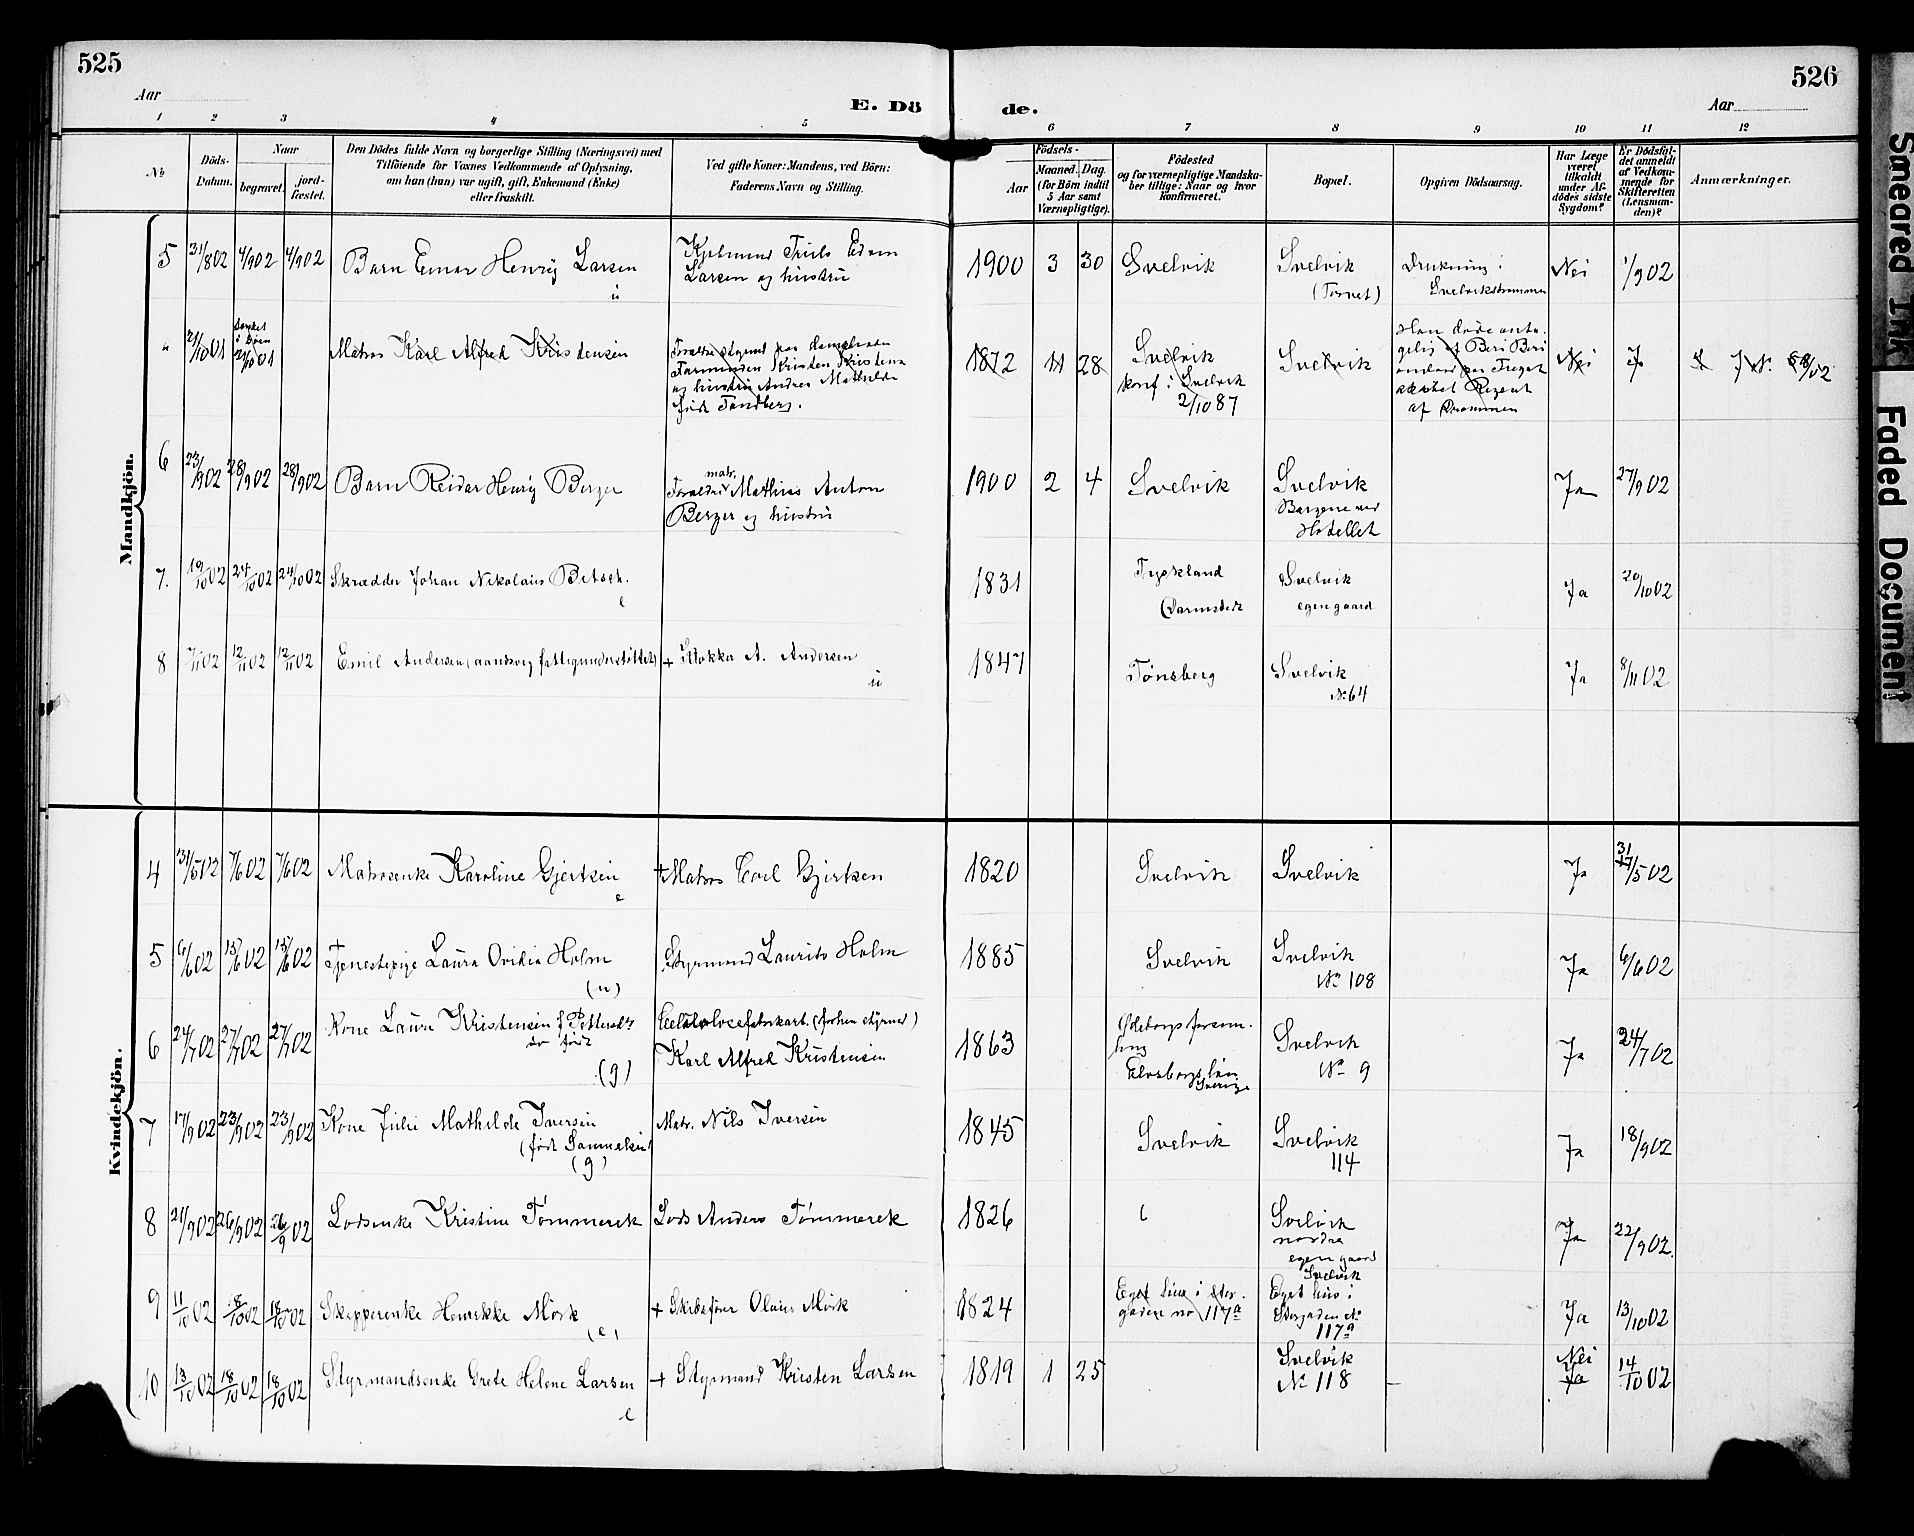 525
526
Aar
E. Dö
de.
Aar
1 2 3 4 5 6 7 8 9 10 11 12
No
Döds-Datum.
Naar
begravet.
jord-fæstet.
Den Dödes fulde Navn og borgerlige Stilling (Næringsvei) med
Tilföiende for Voxnes Vedkommende af Oplysning,
om han (hun) var ugift, gift, Enkemand (Enke)
eller fraskilt.
Ved gifte Koner: Mandens, ved Börn:
Faderens Navn og Stilling.
Födsels-
Aar
Maaned.
Dag.
(for Börn indtil
5 Aar samt
Værnepligtige).
Födested
og for værnepligtige Mandska-
ber tillige: Naar og hvor
konfirmeret.
Bopæl.
Opgiven Dödsaarsag.
Har Læge
været
tilkaldt
under Af-
dödes sidste
Sygdom?
Er Dödsfal-
det anmeldt
af Vedkom-
mende for
Skifteretten
(Lensman-
den)?
Anmærkninger.
Mandkjön.
5 31/8 02 4/9 02 4/9 02 Barn Einar Henrij Larsen
u
Larsen og hustru
1900 3 30 Svelvik
Svelvik
(Torvet)
Drukning i
Svelvikstrømmen
Nei 1/9 02
Matros Karl Alfred Kristensen
og hustru Andrea Mathilde
født Tandberg.
1872 11 28 Svelvik
konf i Svelvik
2/10 87
Svelvik
Han døde anta-
gelig af Beri Beri
af Drammen
Nei
6 23/9 02 28/9 02 28/9 02 Barn Reidar Henrij Berger
matr.
Mathias Anton
Berger og hustru
1900 2 4 Svelvik
Svelvik
Hotellet
Ja 27/9 02
7. 19/10 02 24/10 02 24/10 02 Skrædder Johan Nikolaus
e
1831
Tyskland
(Darmstadt
Svelvik
egen gaard
Ja 20/10 02
8 7/11 02 12/11 02 12/11 02 Emil Andersen (aandsvag fattigunderstøttet)
+ Klokker A. Andersen
u
1847 Tønsberg
Svelvik
No 64
Ja 8/11 02
Kvindekjön.
4 31/5 02 7/6 02 7/6 02 Matrosenke Karoline Gjertsen
e
+ Matros Carl Gjertsen
1820 Svelvik Svelvik Ja 31/5 02
5 6/6 02 15/6 02 15/6 02 Tjenestepige Laura Ovidia Holm
(u)
Styrmand Laurits Holm
1885 Svelvik
Svelvik
No 108
Ja 6/6 02
6 24/7 02 27/7 02 27/7 02 Kone Laura Kristensen f
(g)
Cellulosefabrikarb. (forhen styrmd)
Karl Alfred Kristensen
1863
Elvsborgs län
Sverige
Svelvik
No 9
Ja 24/7 02
7 17/9 02 23/9 02 23/9 02 Kone Juli Mathilde Iversen
(født Sammelsen)
(g)
Matr. Nils Iversen
1845 Svelvik
Svelvik
114
Ja 18/9 02
8 21/9 02 26/9 02 26/9 02 Lodsenke Kristine Tømmerek
Lods Anders Tømmerek
1826
Svelvik
nordre
egen gaard
Ja 22/9 02.
9 11/10 02 18/10 02 18/10 02 Skipperenke Henrikke Mørk
(e)
+ Skibsfører Olaus Mørk
1824
Eget hus i Stor-
gaden no 117a
Svelvik
Eget hus i
Storgaden No
117a
Ja 13/10 02
10 13/10 02 18/10 02 18/10 02 Styrmandsenke Grete Helene Larsen
e
+ Styrmand Kristen Larsen
1819 1 25
Svelvik
No 118
Nei
Ja
14/10 02
Smeared Ink
Faded Document